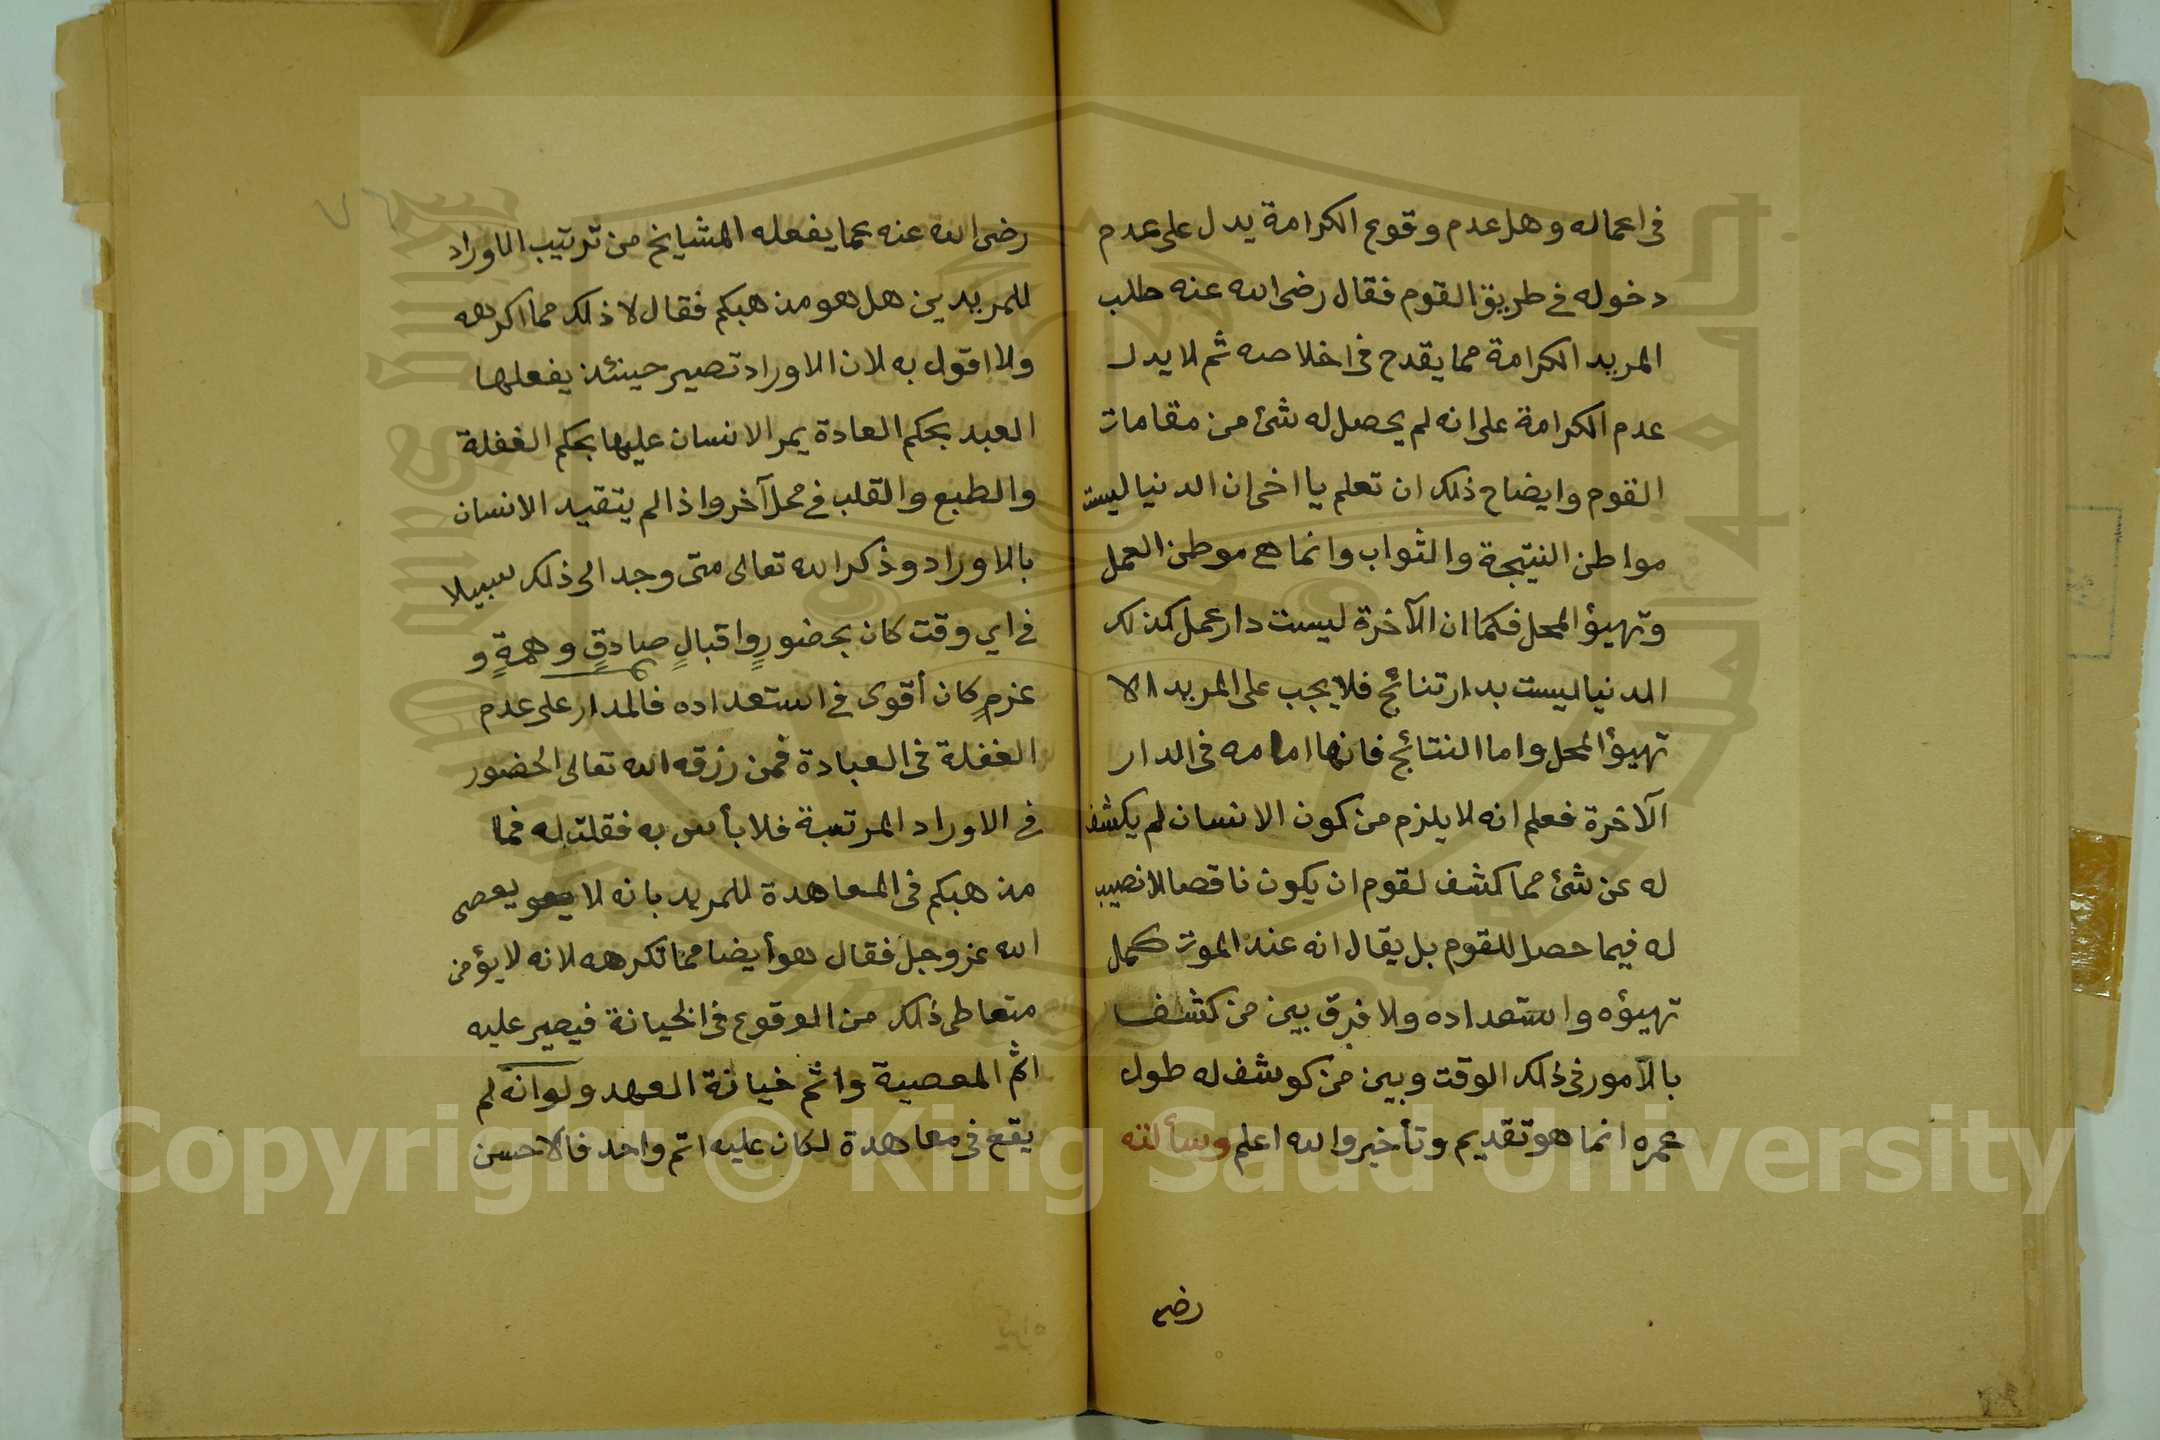 في اعماله وهل عدم وقوع الكرامة يدل على عدم
دخوله في طريق القوم فقال رضى الله عنه طلب
المريد الكرامة مما يقدح في اخلاصه ثم لا يدل
عدم الكرامة على انه لم يحصل له شئ من مقامات
القوم وايضاح ذلك ان تعلم يا اخى ان الدنيا ليست
مواطن النتيجة والثواب وانما هي موطن العمل
وتهيؤ المحل فكما ان الآخرة ليست دار عمل كذلك
الدنيا ليست بدار نتائج فلا يجب على المريد الا
تهيؤ المحل واما النتائج فانها امامه في الدار
الآخرة فعلم انه لا يلزم من كون الانسان لم يكشف
له عن شئ مما كشف لقوم ان يكون ناقصا لا نصيب
له فيما حصل للقوم بل يقال انه عند الموت كمل
تهيؤه واستعداده ولا فرق بين من كشف
بالامور في ذلك الوقت وبين من كوشف له طول
عمره انما هو تقديم وتأخير والله اعلم وسألته
رضى
رضى الله عنه عما يفعله المشايخ من ترتيب الاوراد
للمريدين هل هو مذهبكم فقال لا ذلك مما اكرهه
ولا اقول به لان الاوراد تصير حينئذ يفعلها
العبد بحكم العادة يمر الانسان عليها بحكم الغفلة
والطبع والقلب في محل آخر واذا لم يتقيد الانسان
بالاوراد وذكر الله تعالى متى وجد الى ذلك سبيلا
في اي وقت كان بحضورٍ واقبالٍ صادقٍ وهمةٍ و
عزمٍ كان أقوى في استعداده فالمدار على عدم
الغفلة في العبادة فمن رزقه الله تعالى الحضور
في الاوراد المرتبة فلا بأس به فقلت له فما
مذهبكم في المعاهدة للمريد بانه لا يعصى
الله عز وجل فقال هو أيضا مما تكرهه لانه لا يؤمن
متعاطى ذلك من الوقوع في الخيانة فيصير عليه
اثم المعصية واثم خيانة العهد ولو انه لم
يقع في معاهدة لكان عليه اثم واحد فالاحسن
Copyright © King Saud University